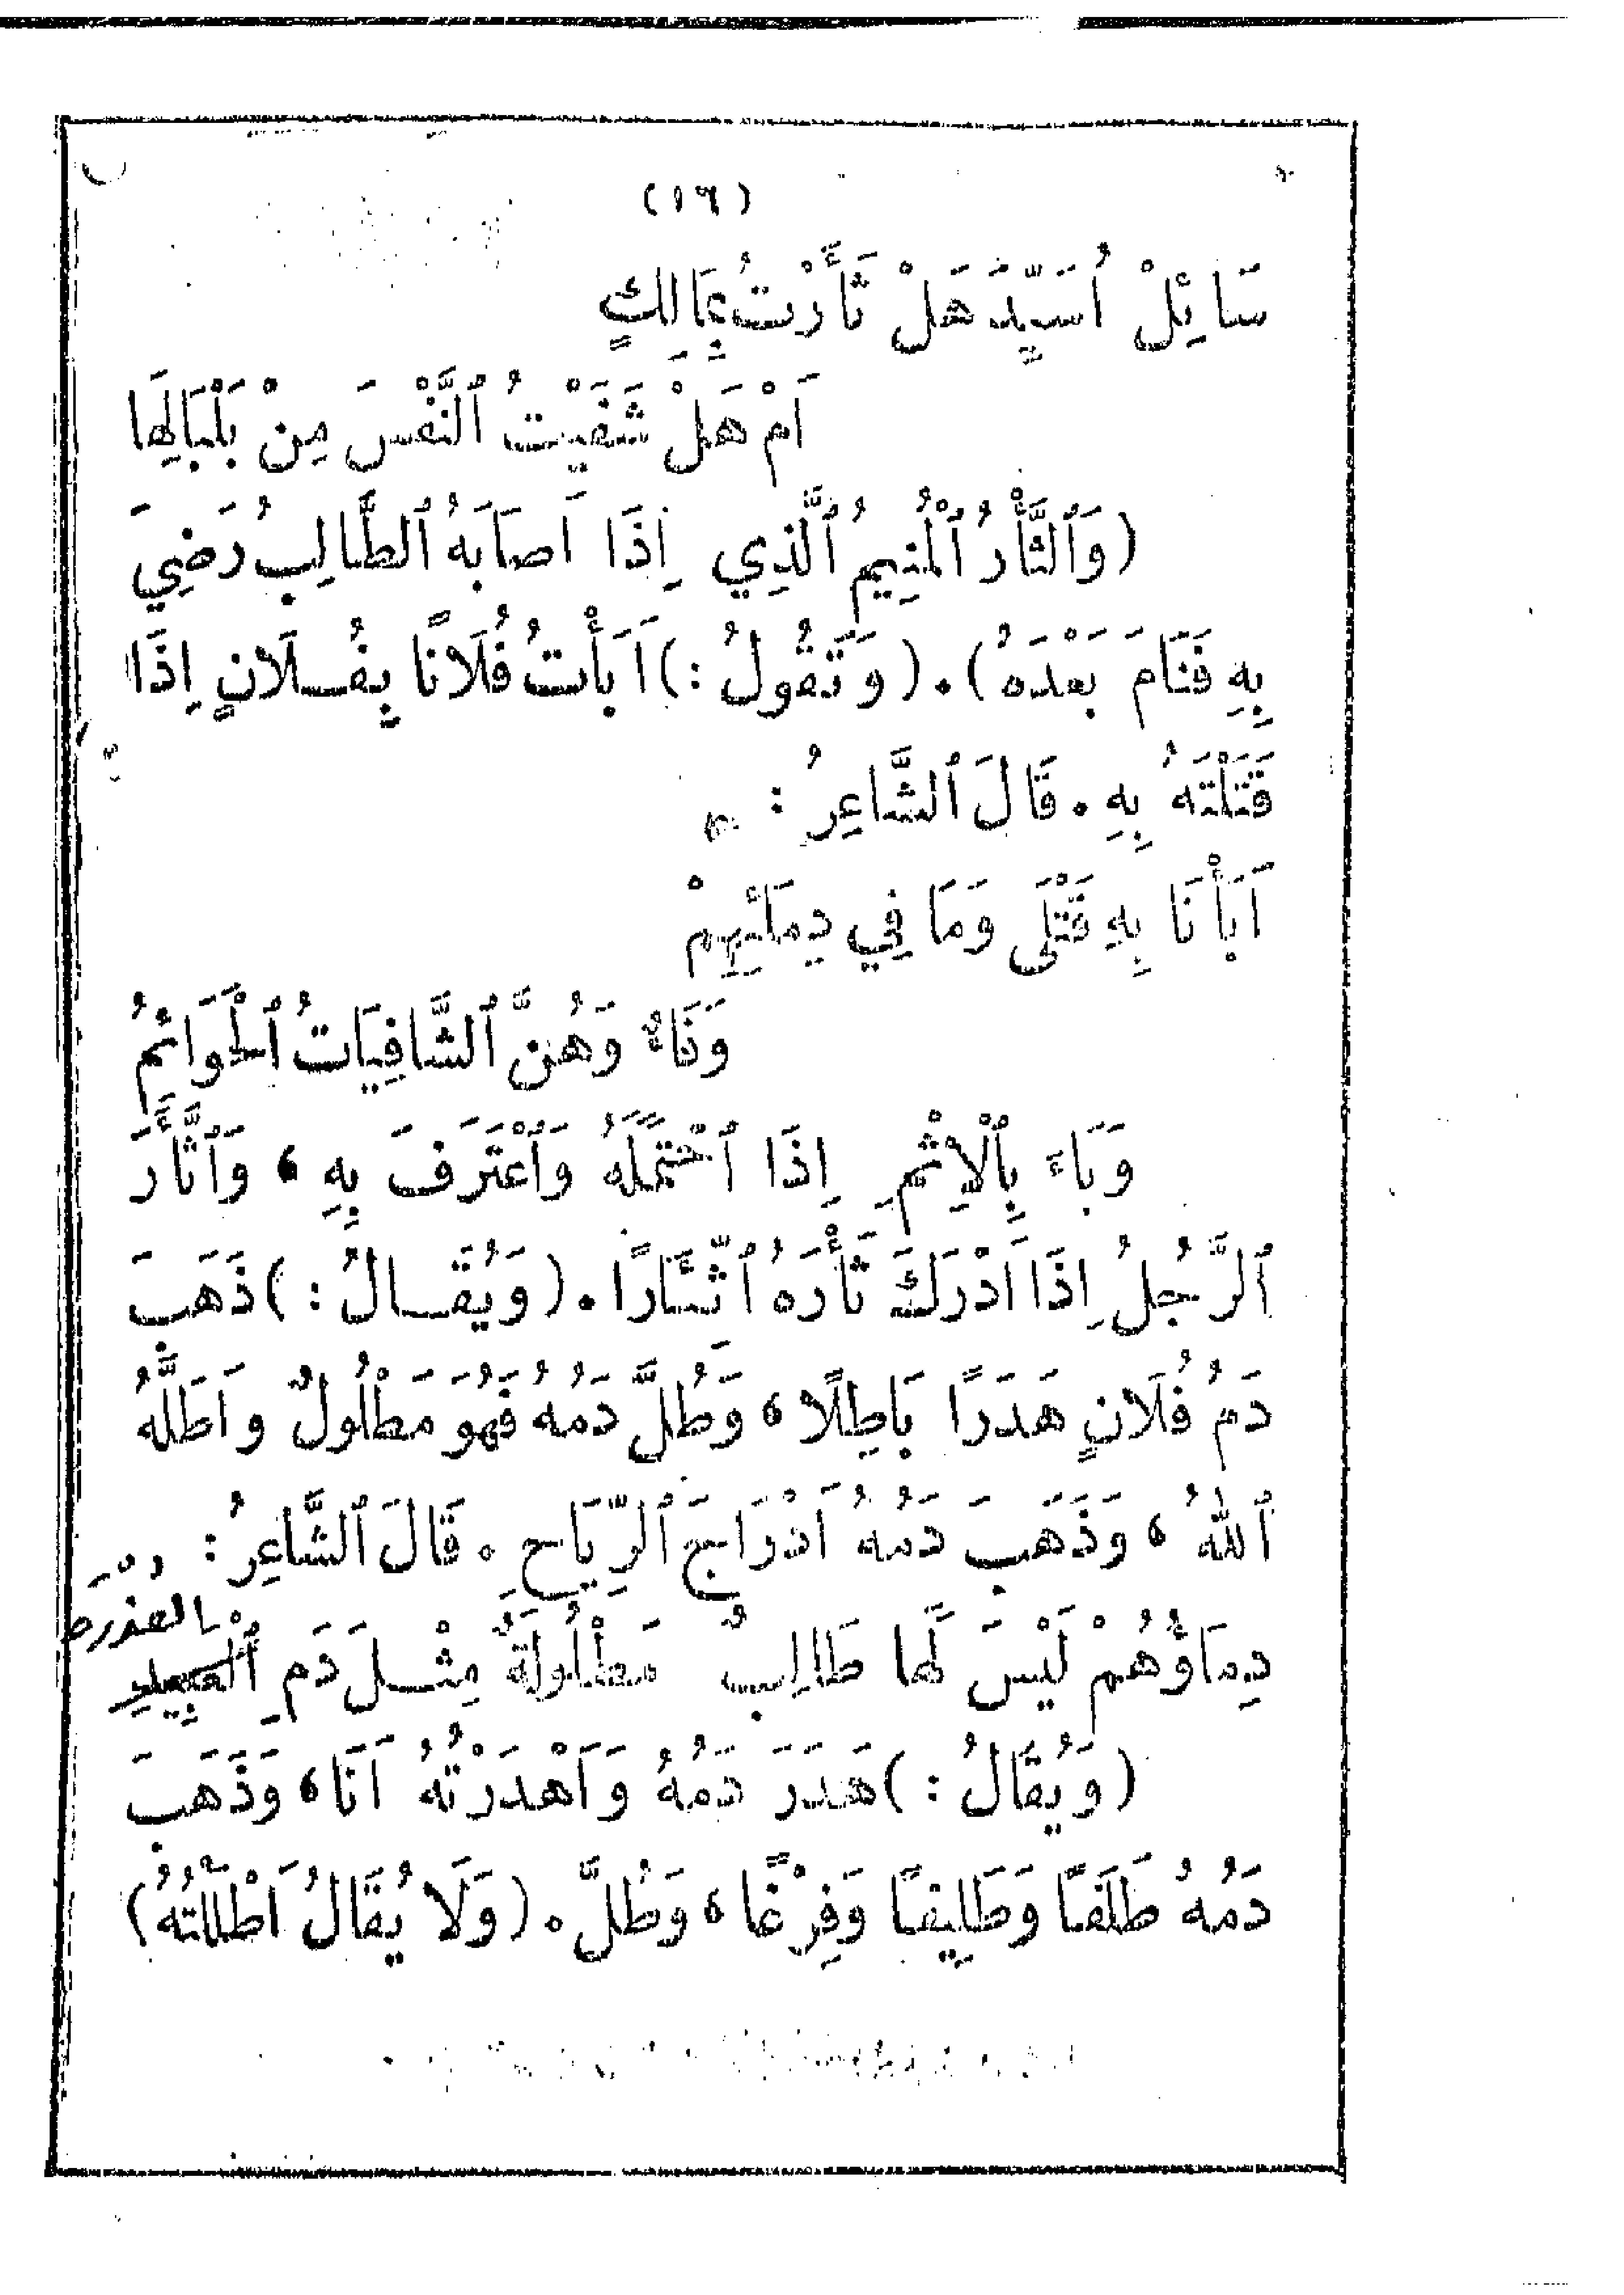 (١٦)
سَائِلْ أُسَيِّدَ هَلْ ثَأَرْتُ بِمَالِكٍ
اَمْ هَلْ شَفَيْتُ ٱلنَّفْسَ مِنْ بَلْبَالِهَا
(وَٱلثَّأْرُ ٱلْمُنِيمُ ٱلَّذِي اِذَا اَصَابَهُ ٱلطَّالِبُ رَضِيَ
بِهِ فَنَامَ بَعْدَهُ). (وَتَقُولُ:) اَبَأْتُ فُلَانًا بِفُلَانٍ اِذَا
قَتَلْتَهُ بِهِ. قَالَ ٱلشَّاعِرُ:
اَبَأْنَا بِهِ قَتْلَى وَمَا فِي دِمَائِهِمْ
وَفَاءٌ وَهُنَّ ٱلشَّافِيَاتُ ٱلْحَوَائِمُ
وَبَاءَ بِٱلْاِثْمِ اِذَا ٱحْتَمَلَهُ وَٱعْتَرَفَ بِهِ، وَٱثَّأَرَ
ٱلرَّجُلُ اِذَا اَدْرَكَ ثَأْرَهُ ٱثِّئَارًا. (وَيُقَالُ:) ذَهَبَ
دَمُ فُلَانٍ هَدَرًا بَاطِلًا، وَطُلَّ دَمُهُ فَهُوَ مَطْلُولٌ وَاَطَلَّهُ
ٱللهُ، وَذَهَبَ دَمُهُ اَدْرَاجَ ٱلرِّيَاحِ. قَالَ ٱلشَّاعِرُ:
دِمَاؤُهُمْ لَيْسَ لَهَا طَالِبٌ مَطْلُولَةٌ مِثْلَ دَمِ ٱلْعَبِيدِ
(وَيُقَالُ:) هَدَرَ دَمُهُ وَاَهْدَرْتُهُ اَنَا، وَذَهَبَ
دَمُهُ طَلَفًا وَطَلِيفًا وَفِرْغًا، وَطُلَّ. (وَلَا يُقَالُ اَطْلَلْتُهُ)